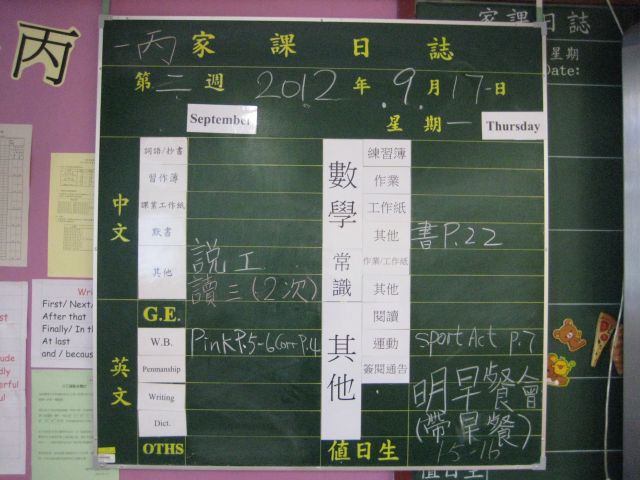 丙
一丙 家課日誌
第二週 2012年 9月17日
September 星期一 Thursday
中文
詞語/抄書
習作簿
課業工作紙
默書
其他 説工
讀三(2次)
G.E.
英文
W.B. Pink P.5-6 Corr P.4
Penmanship
Writing
Dict.
OTHS
數學
練習簿
作業
工作紙
其他 書P.22
常識
作業/工作紙
其他
其他
閱讀
運動 Sport Act P.7
簽閱通告
明早餐會
(帶早餐)
值日生 15-16
家課日誌
星期
Date:
First/ Next/
After that
Finally/ In th
At last
and / becaus